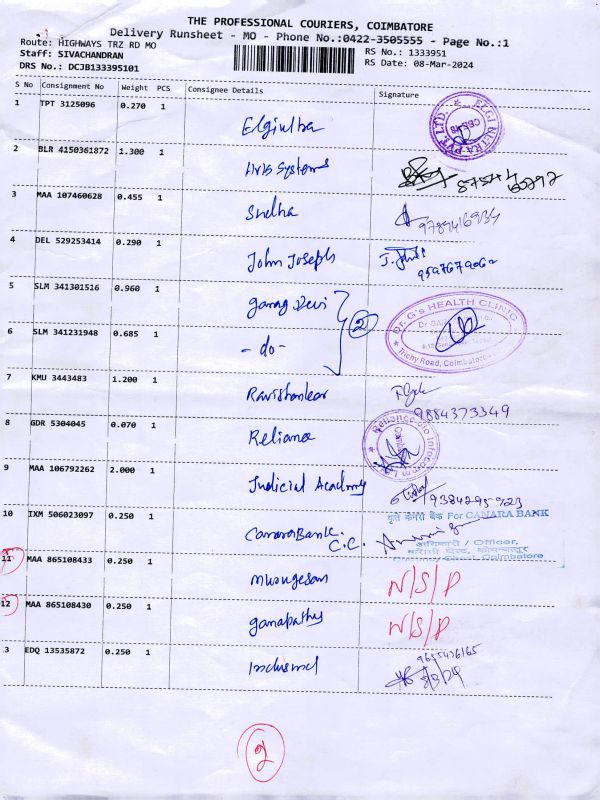 THE PROFESSIONAL COURIERS, COIMBATORE
Delivery Runsheet - MO - Phone No.:0422-3505555 - Page No.:1
Route: HIGHWAYS TRZ RD MO
RS No.: 1333951
Staff: SIVACHANDRAN
RS Date: 08-Mar-2024
DRS No.: DCJB133395101
S No Consignment No Weight PCS Consignee Details Signature
1 TPT 3125096 0.270 1
ELGI ULTRA PVT. LTD
Elgiultra
2 BLR 4150361872 1.300 1
Systems
3 MAA 107460628 0.455 1
Sneha
9789416934
4 DEL 529253414 0.290 1
John Joseph
9597679062
5 SLM 341301516 0.960 1
Devi
2
Dr. G's HEALTH CLINIC
Trichy Road, Coimbatore
6 SLM 341231948 0.685 1
- do -
7 KMU 3443483 1.200 1
Ravishankar
9884373349
8 GDR 5304045 0.070 1
Reliance
Reliance Jio Infocomm
9 MAA 106792262 2.000 1
Judicial Academy
9384295923
10 IXM 506023097 0.250 1
Canara Bank.
C.C.
कृते केनरा बैंक For CANARA BANK
अधिकारी / Officer
Coimbatore
11 MAA 865108433 0.250 1
Murugesan
N/S/P
12 MAA 865108430 0.250 1
Ganapathy
N/S/P
13 EDQ 13535872 0.250 1
9655426165
8/3/24
2